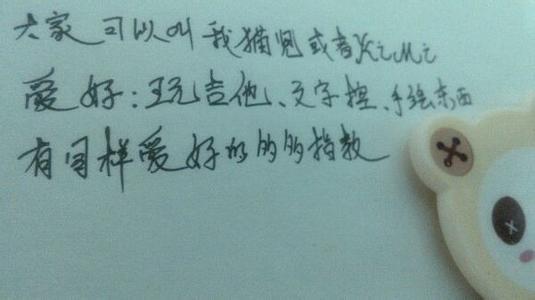 大家可以叫我猫儿或者KiMi
爱好:玩吉他、文字控、手绘东西
有同样爱好的的多指教